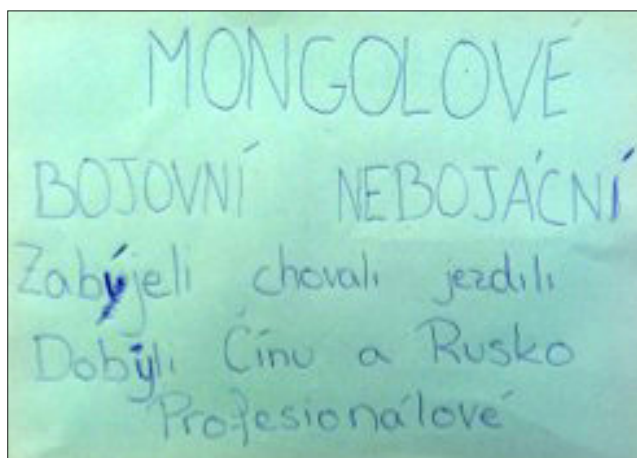 MONGOLOVÉ
BOJOVNÍ NEBOJÁCNÍ
Zabýjeli chovali jezdili
Dobyli Čínu a Rusko
Profesionálové